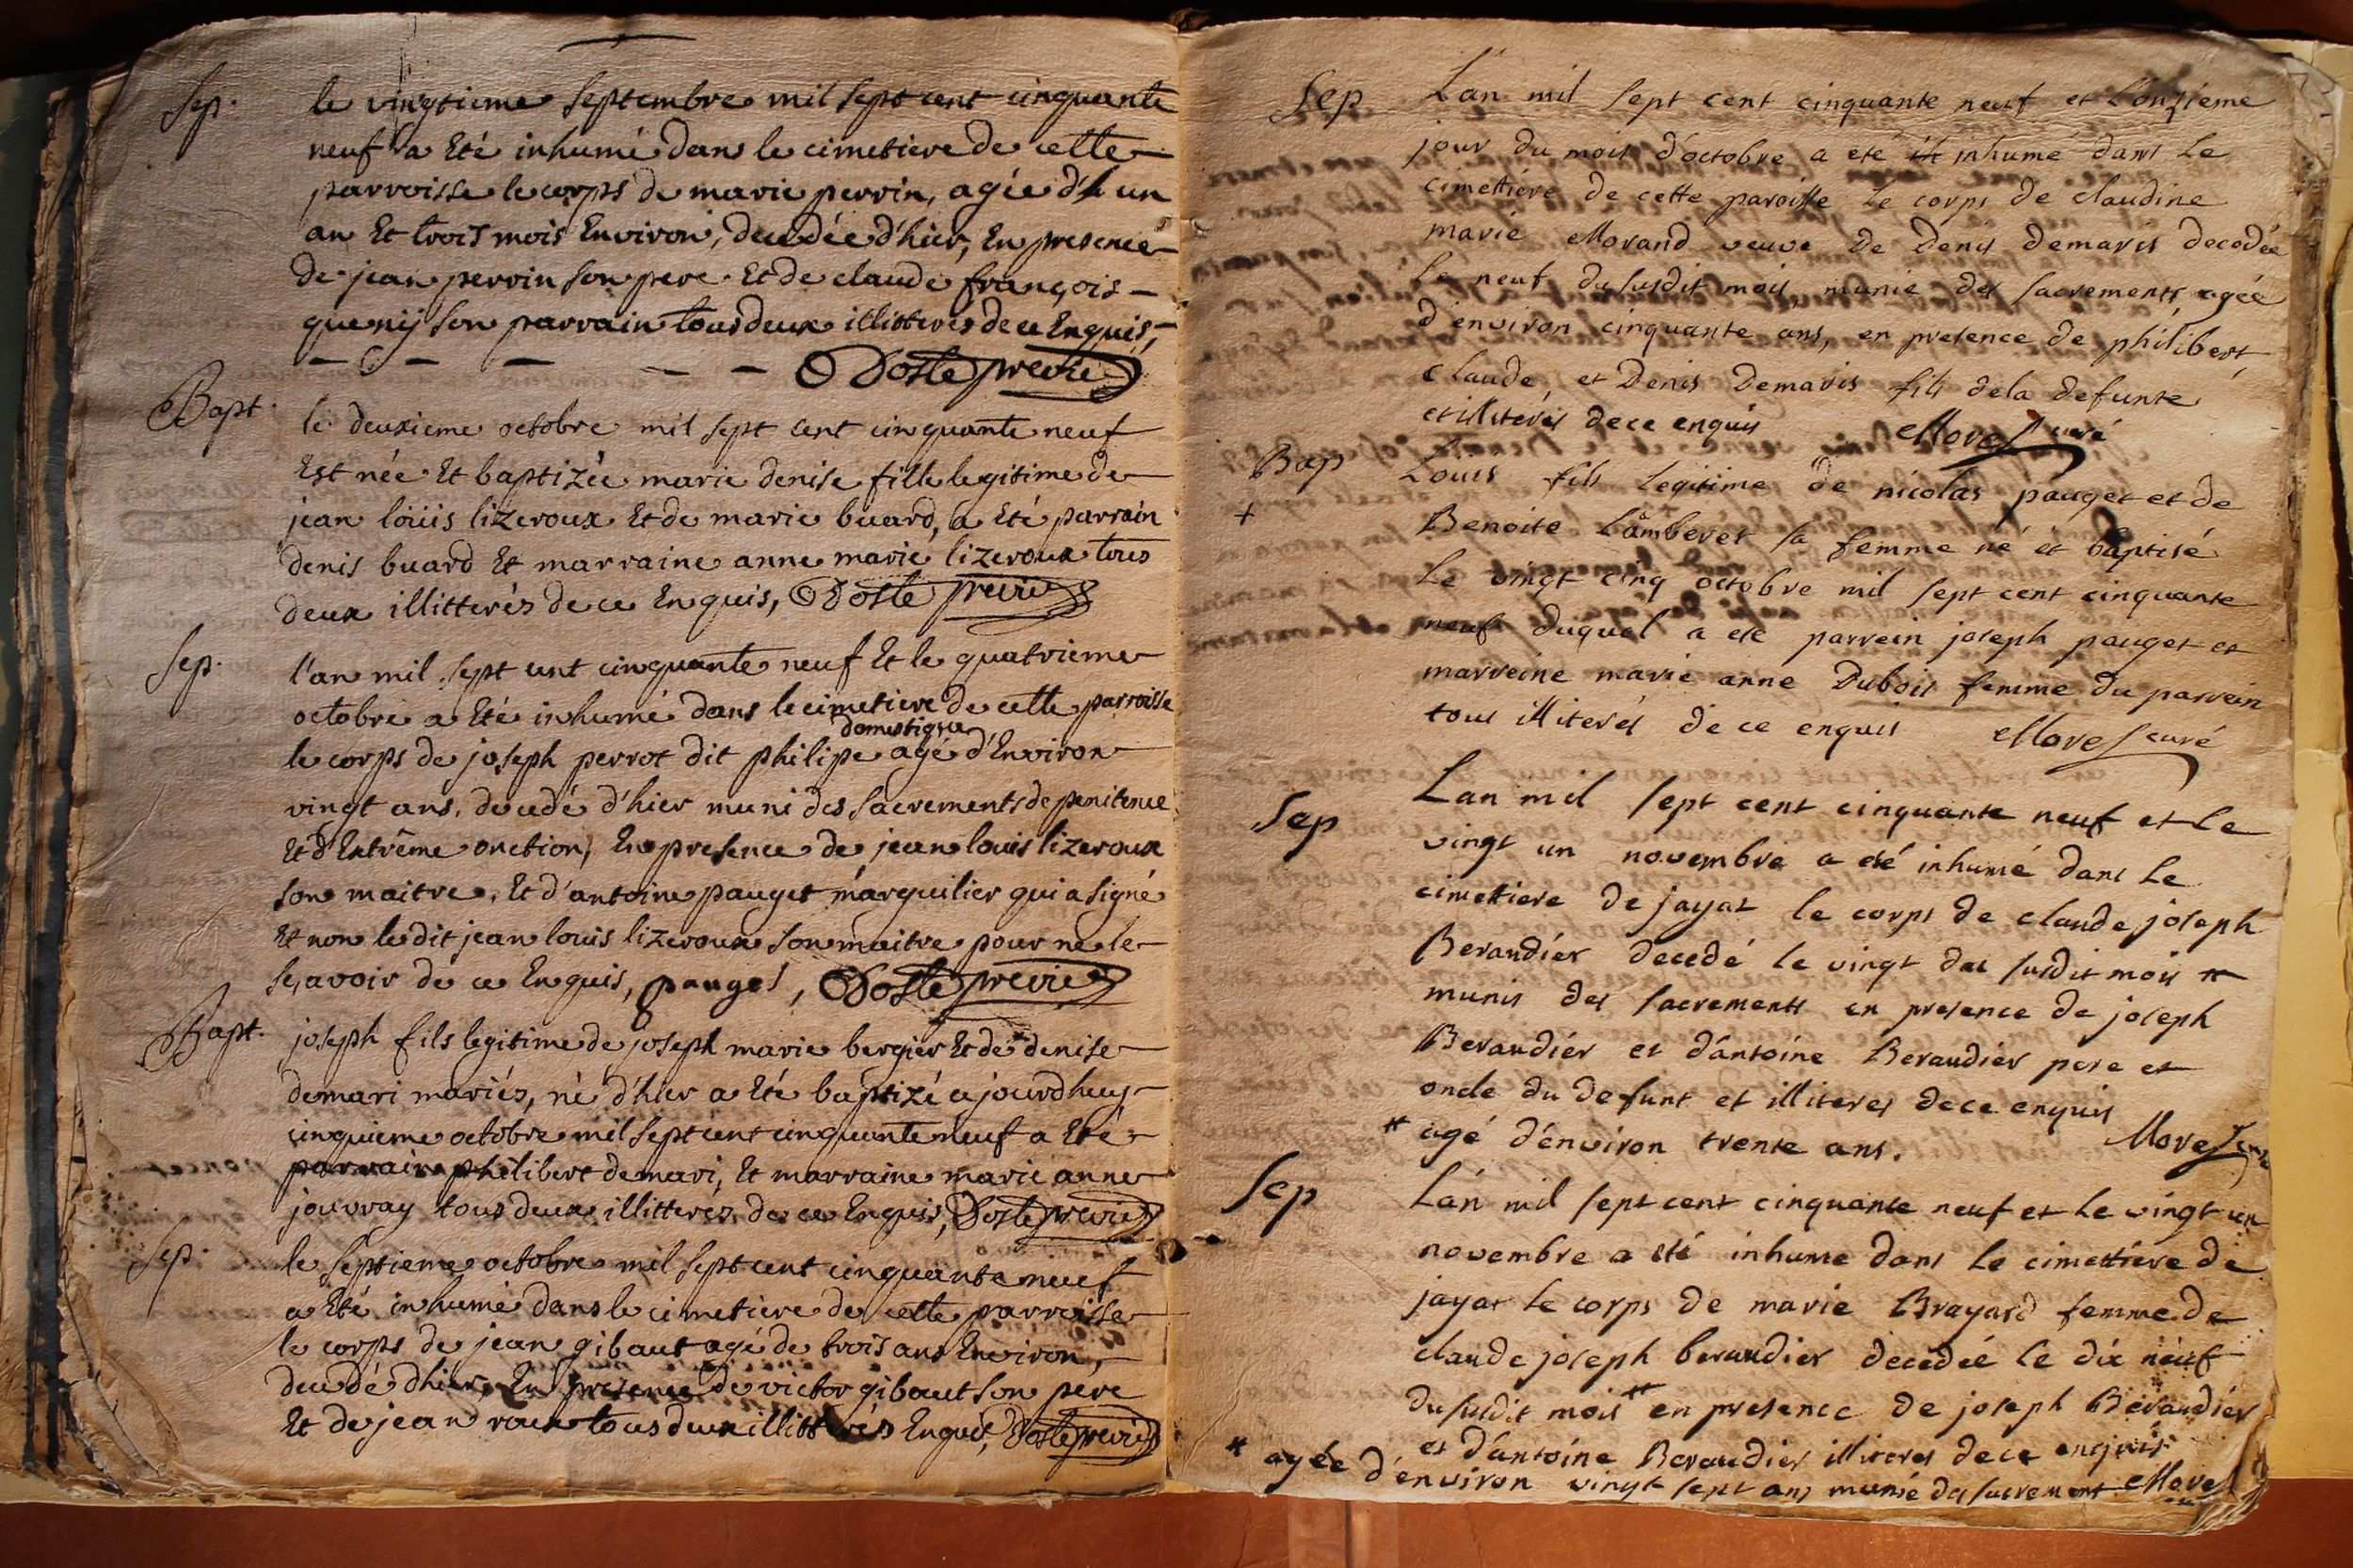 Sep.
le vingtieme septembre mil sept cent cinquante
neuf a Eté inhumé dans le cimetiere de cette
parroisse le corps de marie perrin, agée d'un
an Et trois mois Environ, decedée d'hier, En presence
de jean perrin son pere Et de claude françois
quenij son parrain tous deux illitteres de ce Enquis,
Doste previre
Bapt.
le deuxieme octobre mil sept cent cinquante neuf
Est née Et baptizée marie denise fille legitime de
jean loüis lizeroux Et de marie buard, a Eté parrain
denis buard Et marraine anne marie lizeroux tous
deux illitterés de ce Enquis, Doste previre
Sep.
l'an mil sept cent cinquante neuf Et le quatrieme
octobre a Eté inhumé dans le cimetiere de cette parroisse
domestique
le corps de joseph perrot dit philipe agé d'Environ
vingt ans, decedé d'hier muni des sacrements de penitence
Et d'Extrême onction, En presence de jean louis lizeroux
son maitre, Et d'antoine pauget marguilier qui a signé
Et non le dit jean louis lizeroux son maitre pour ne le
sçavoir de ce Enquis, pauget, Doste previre
Bapt.
joseph fils legitime de joseph marie bergier Et de denise
demari mariés, né d'hier a Eté baptizé ajourdhuy
cinquieme octobre mil sept cent cinquante neuf a Eté
parrain philibert demari, Et marraine marie anne
jouvray tous deux illitterés de ce Enquis, Doste previre
Sep.
le septieme octobre mil sept cent cinquante neuf
a Eté inhumé dans le cimetiere de cette parroisse
le corps de jean gibaut agé de trois ans Environ,
decedé d'hier, En presence de victor gibaut son pere
Et de jean roux tous deux illitterés Enquis, Doste previre
Sep
L'an mil sept cent cinquante neuf et l'onzieme
jour du mois d'octobre a eté inhumé dans le
cimettiére de cette paroisse le corps de claudine
marie Morand veuve de Denis demaris decedée
le neuf du susdit mois munie des sacrements agée
d'environ cinquante ans, en presence de philibert,
claude, et Denis Demaris fils de la defunte
et illiterés de ce enquis Morel curé
Bap
+
Louis fils legitime de nicolas pauget et de
Benoite Lamberet sa femme né et baptisé
le vingt cinq octobre mil sept cent cinquante
neuf duquel a eté parrein joseph pauget et
marreine marie anne Dubois femme du parrein
tous illiterés de ce enquis Morel curé
Sep
L'an mil sept cent cinquante neuf et le
vingt un novembre a eté inhumé dans le
cimettiere de jayat le corps de claude joseph
Beraudier decedé le vingt du susdit mois *
munis des sacrements en presence de joseph
Beraudiér et d'antoine Beraudiér pere et
oncle du defunt et illiteres de ce enquis
* agé d'environ trente ans. Morel curé
Sep
L'an mil sept cent cinquante neuf et le vingt un
novembre a eté inhumé dans le cimettiére de
jayat le corps de marie Brayard femme de
claude joseph beraudier decedée le dix neuf
du susdit mois * en presence de joseph Beraudiér
et d'antoine Beraudier illiteres de ce enquis
* agée d'environ vingt sept ans munie des sacrement Morel